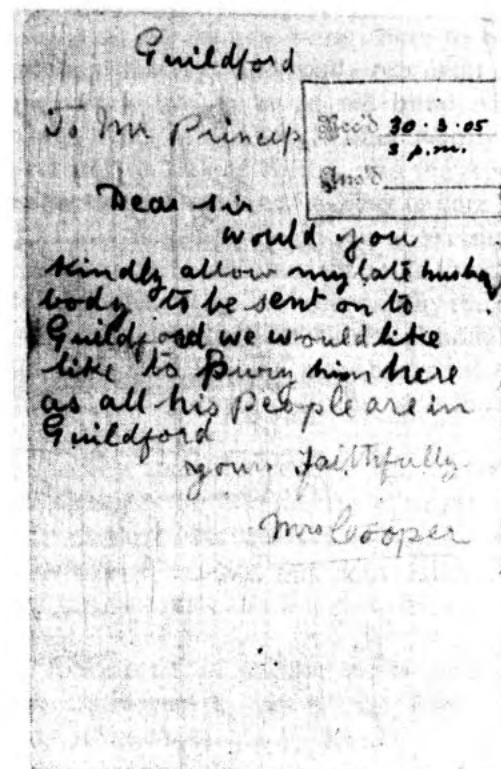 Guildford
To Mr Princep
Rec'd 30.3.05
3 p.m.
Ans'd
Dear sir
would you
kindly allow my late husba
body to be sent on to
Guildford we would like
like to Bury him here
as all his People are in
Guildford
yours faithfully
Mrs Cooper